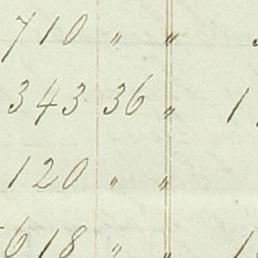 710 " "
343 36 "
120 " "
618 " "